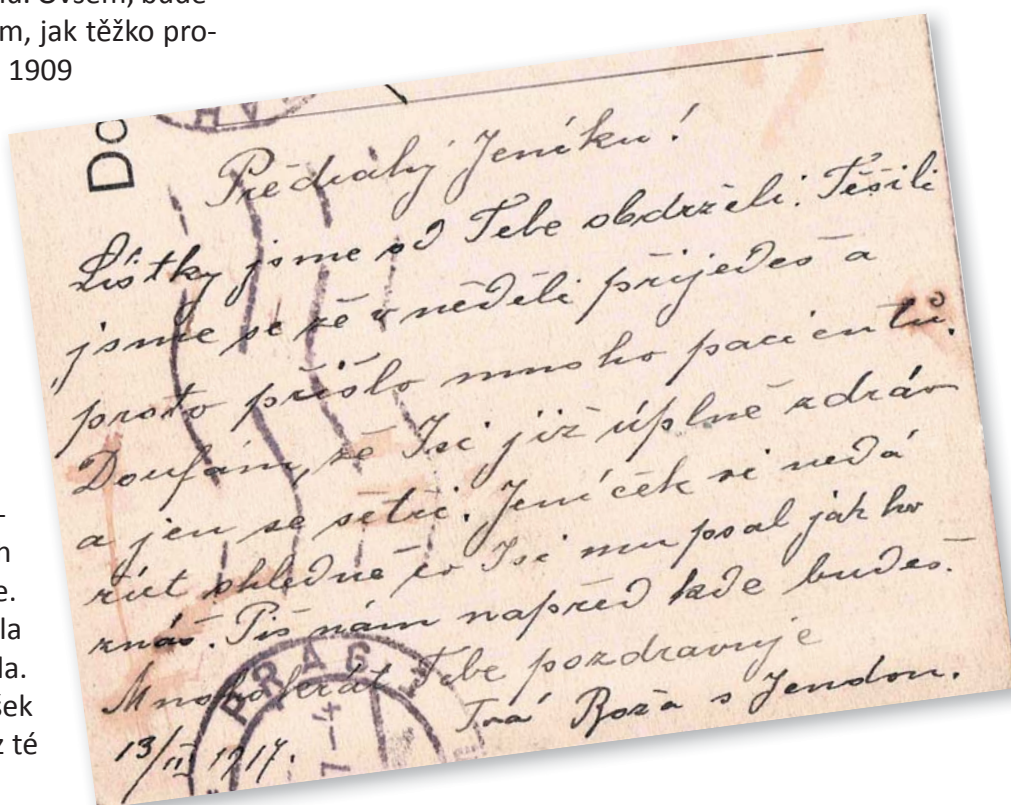 Ovšem, bude
m, jak těžko pro-
1909
Do
Předrahý Jeníku!
Lístky jsme od Tebe obdrželi. Těšili
jsme se že v neděli přijedeš a
proto přišlo mnoho pacientů.
Doufám, že Jsi již úplně zdráv
a jen se šetři. Jeníček si nedá
říct ohledně co Jsi mu psal jak ho
znáš. Piš nám napřed kde budeš.
Mnohokrát Tebe pozdravuje
Tvá Róža s Jendou.
13/II 1917.
PRAG
-
n
e.
la
la.
šek
z té